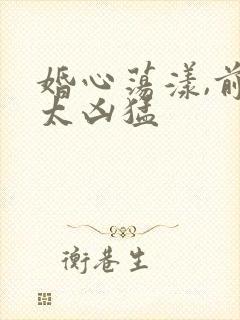 婚心荡漾,前
太凶猛
衡巷生